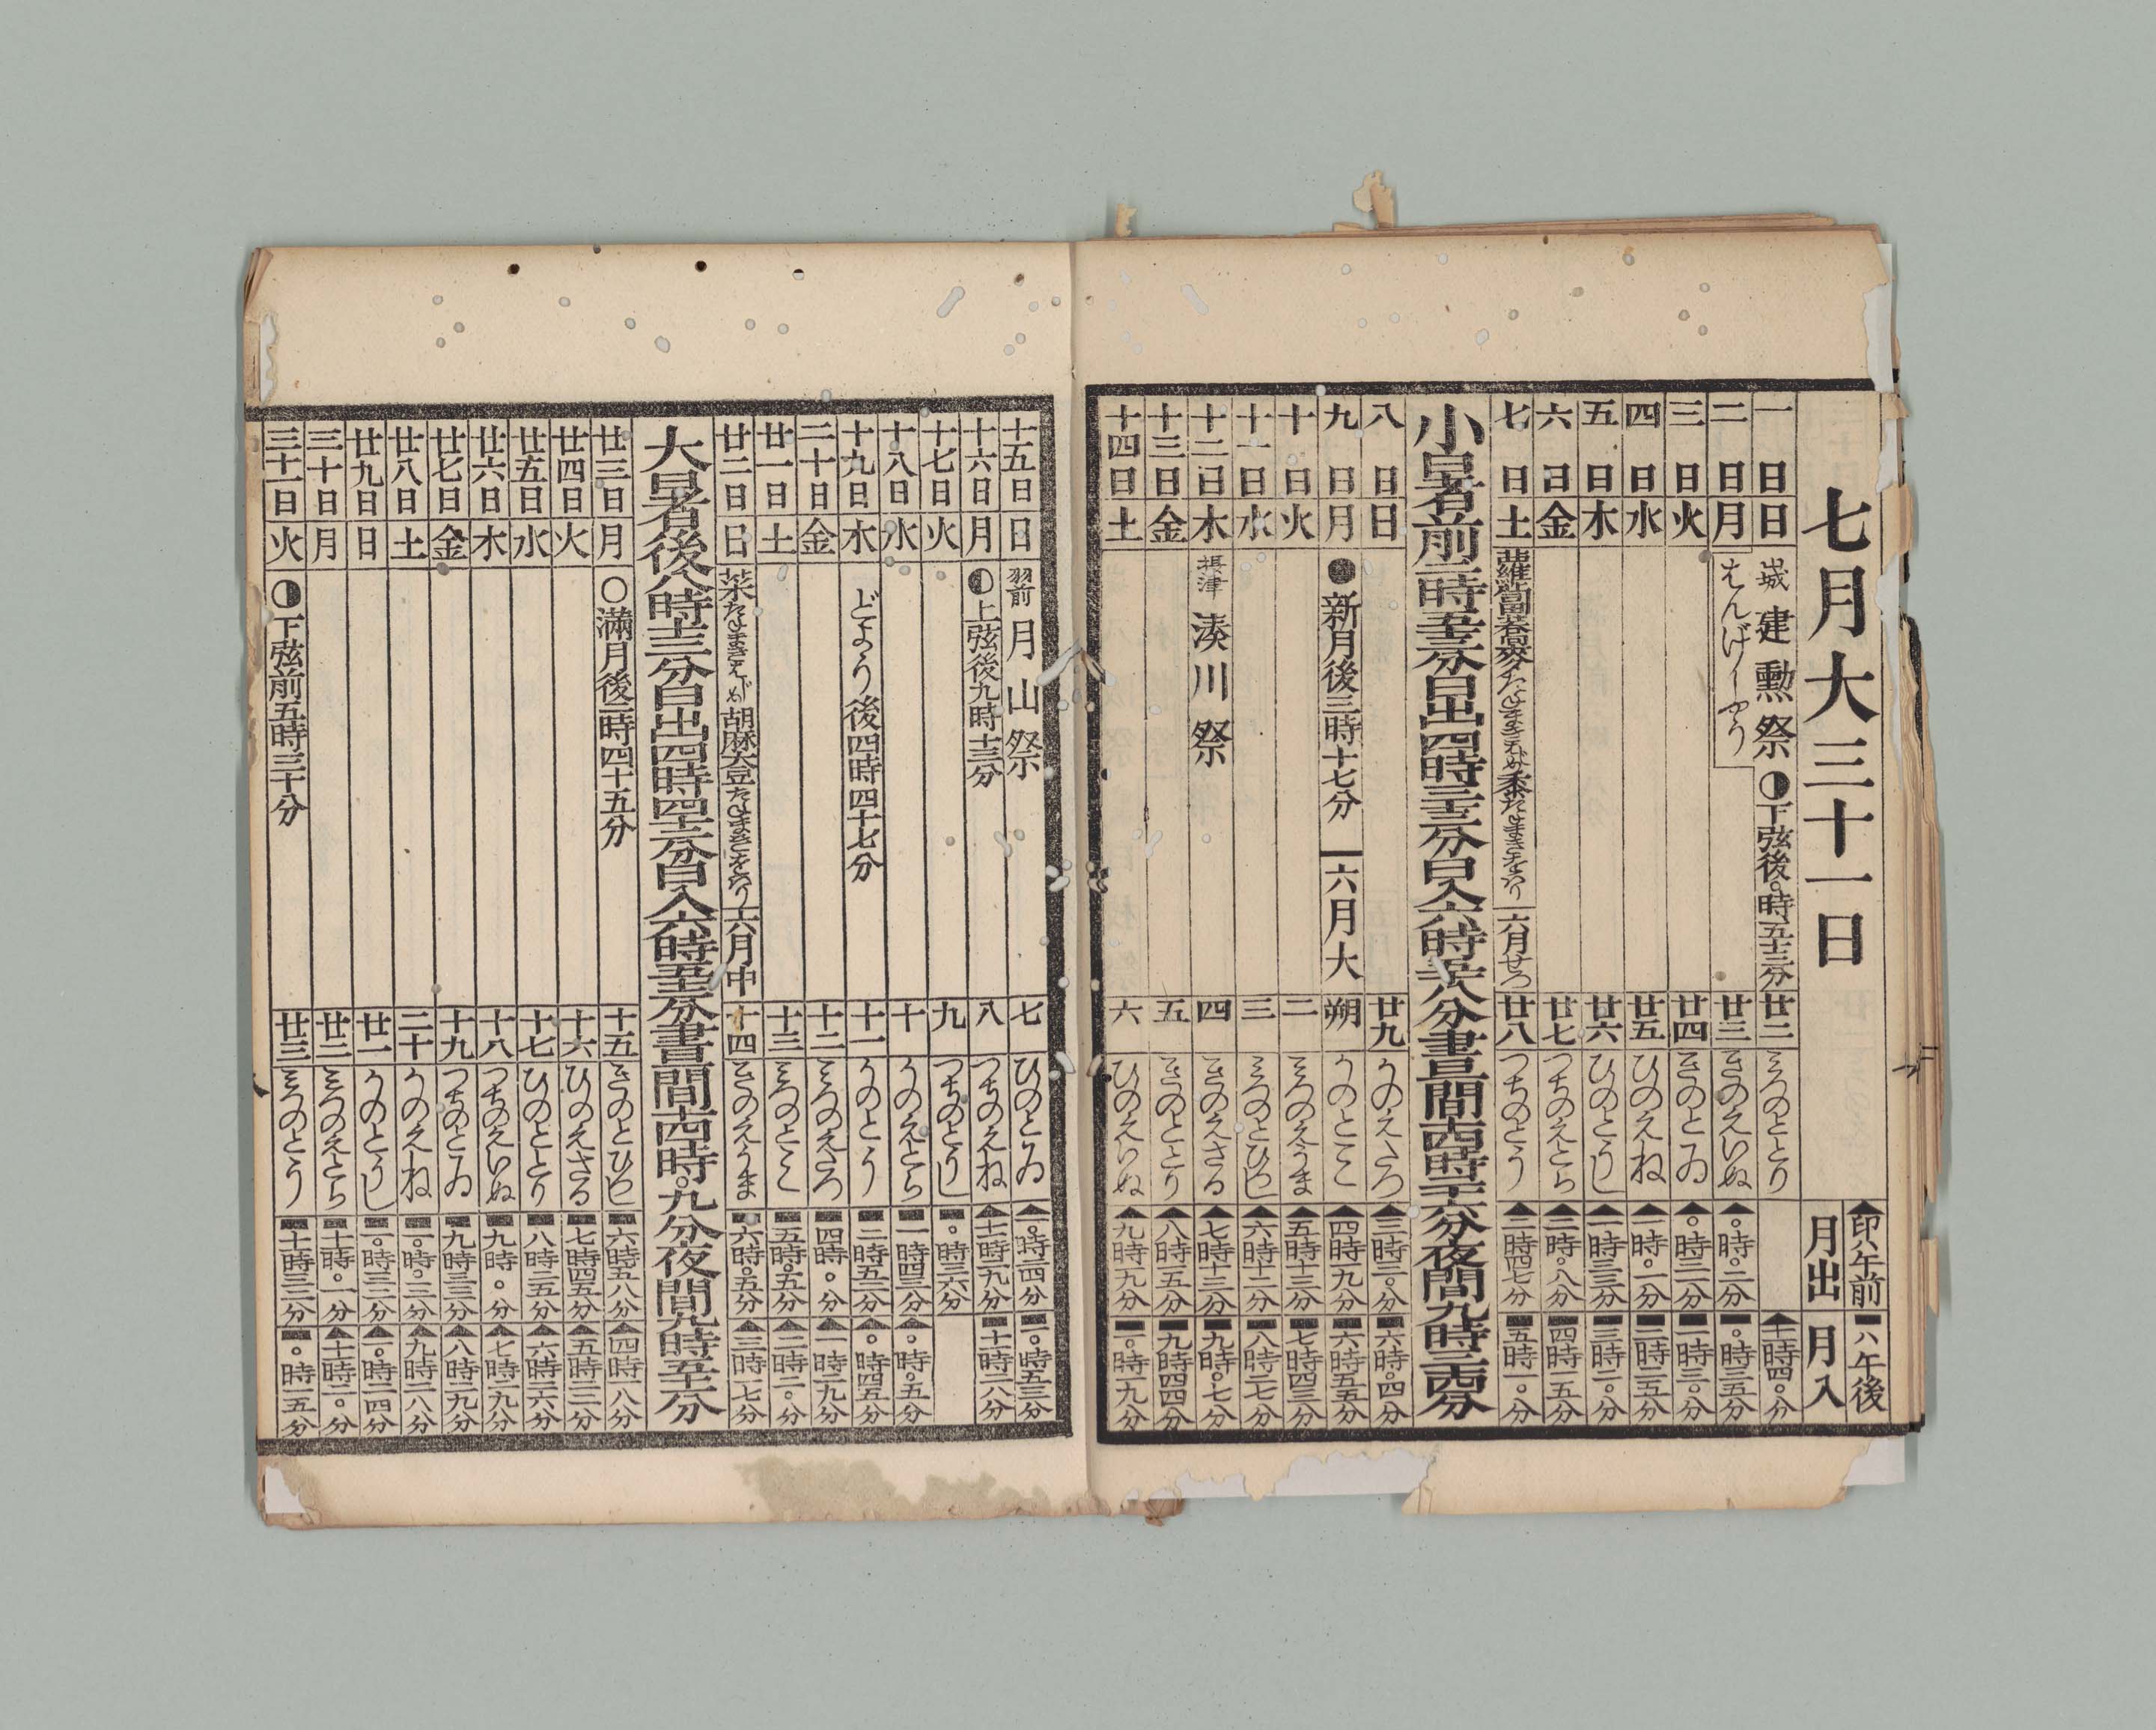 ▲印ハ午前
▬ハ午後
七月大三十一日
月出
月入
一日 日 建勲祭 ◑下弦後〇時五十三分 廿二 みつのととり ▲十時四〇分
二日 月 はんげしやう 廿三 きのえいぬ ▲〇時〇二分 ▬〇時三五分
三日 火 廿四 きのとゐ ▲〇時三二分 ▬一時三〇分
四日 水 廿五 ひのえね ▲一時〇一分 ▬二時二五分
五日 木 廿六 ひのとうし ▲一時三三分 ▬三時二〇分
六日 金 廿七 つちのえとら ▲二時〇八分 ▬四時一五分
七日 土 蘿蔔蕎麥たねまき 黍たねまき 六月せつ 廿八 つちのとう ▲二時四七分 ▬五時一〇分
小暑前 日出四時 日入六時 晝間十四時 夜間九時
八日 日 廿九 かのえたつ ▲三時三〇分 ▬六時〇四分
九日 月 ●新月後三時十七分 六月大 朔 かのとみ ▲四時一九分 ▬六時五五分
十日 火 二 みつのえうま ▲五時十三分 ▬七時四三分
十一日 水 三 みつのとひつし ▲六時十二分 ▬八時二七分
十二日 木 摂津 湊川祭 四 きのえさる ▲七時十三分 ▬九時〇七分
十三日 金 五 きのととり ▲八時一五分 ▬九時四四分
十四日 土 六 ひのえいぬ ▲九時一九分 ▬一〇時一九分
十五日 日 羽前 月山祭 七 ひのとゐ ▲一〇時二四分 ▬一〇時五三分
十六日 月 ◐上弦後九時十三分 八 つちのえね ▲十一時二九分 ▬十一時二八分
十七日 火 九 つちのとうし ▬〇時三六分
十八日 水 十 かのえとら ▬一時四三分 ▲〇時〇五分
十九日 木 どよう後四時四十七分 十一 かのとう ▬二時五二分 ▲〇時四五分
二十日 金 十二 みつのえたつ ▬四時〇〇分 ▲一時二九分
廿一日 土 十三 みつのとみ ▬五時〇五分 ▲二時二〇分
廿二日 日 菜たねまき 胡麻大豆たねまき 六月中 十四 きのえうま ▬六時〇五分 ▲三時一七分
大暑後八時十三分 日出四時四十六分 日入六時五十五分 晝間十四時〇九分 夜間九時五十一分
廿三日 月 ○滿月後二時四十五分 十五 きのとひつし ▬六時五八分 ▲四時一八分
廿四日 火 十六 ひのえさる ▬七時四五分 ▲五時二二分
廿五日 水 十七 ひのととり ▬八時二五分 ▲六時二六分
廿六日 木 十八 つちのえいぬ ▬九時〇〇分 ▲七時二九分
廿七日 金 十九 つちのとゐ ▬九時三三分 ▲八時二九分
廿八日 土 二十 かのえね ▬一〇時〇三分 ▲九時二八分
廿九日 日 廿一 かのとうし ▬一〇時三三分 ▲一〇時二四分
三十日 月 廿二 みつのえとら ▬十一時〇一分 ▲十一時二〇分
三十一日 火 ◑下弦前五時三十分 廿三 みつのとう ▬十一時三三分 ▬〇時一五分